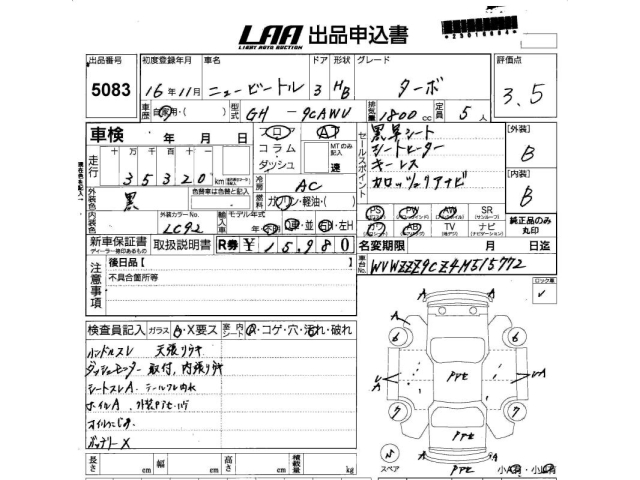 LAA 出品申込書
LIGHT AUTO AUCTION
出品番号 初度登録年月 車名 ドア 形状 グレード 評価点
5083 16年11月 ニュービートル 3 HB ターボ 3.5
車歴 自家用・( ) 型式 GH - 9CAWU 排気量 1800cc 定員 5人
車検 年 月 日 フロア AT
コラム MTのみ記入
ダッシュ 速
走行 十 万 千 百 十
35320 km
セールスポイント
黒革シート
シートヒーター
キーレス
カロッツェリアナビ
【外装】
B
【内装】
B
外装色 黒 色替車は色替と記入 冷房 AC
燃料 ガソリン・軽油・( )
内装色 外装カラーNo. LC92 輸入車 モデル年式 年 D車・並 右H・左H
PS PW AW SR
(サンルーフ)
AB TV ナビ
(ナビゲーション)
純正品のみ丸印
新車保証書 取扱説明書 R券 ¥15,980 名変期限 月 日迄
ディーラー捺印あるもの
後日品【 】 車台No. WVWZZZ9CZ4M515772
注意事項 不具合箇所等
ロック車
検査員記入 ガラス A・X要ス 室内シート コゲ・穴・汚れ・破れ
ハンドルスレ 天張リヤキ
シートスレA.
ホイルA.
バッテリーX
A A
6 6
A A
7 7
A A
スペア
長さ cm 幅 cm 高さ cm 積載量 kg